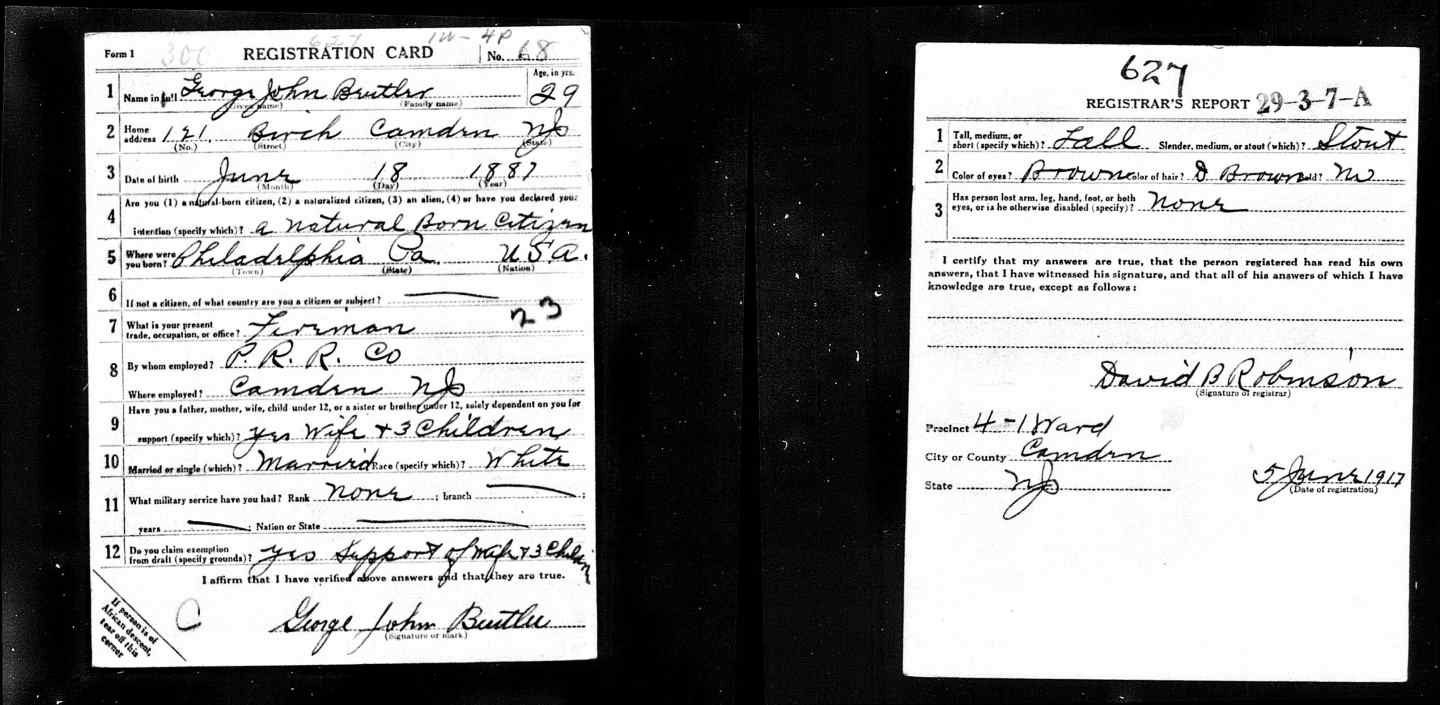 627 1W- 4P
Form 1 306 REGISTRATION CARD No. 68
Age, in yrs.
1 Name in full George John Beutler 29
(Given name) (Family name)
2 Home address 121. Birch Camden NJ
(No.) (Street) (City) (State)
3 Date of birth June 18 1887
(Month) (Day) (Year)
Are you (1) a natural-born citizen, (2) a naturalized citizen, (3) an alien, (4) or have you declared your
4 intention (specify which)? a natural Born Citizen
5 Where were you born? Philadelphia Pa. U S A.
(Town) (State) (Nation)
6 If not a citizen, of what country are you a citizen or subject?
23
7 What is your present trade, occupation, or office? Fireman
8 By whom employed? P. R. R. Co
Where employed? Camden NJ
Have you a father, mother, wife, child under 12, or a sister or brother under 12, solely dependent on you for
9 support (specify which)? yes Wife + 3 Children
10 Married or single (which)? Married Race (specify which)? White
11 What military service have you had? Rank none ; branch ;
years ; Nation or State
12 Do you claim exemption from draft (specify grounds)? yes Support of Wife + 3 Children
I affirm that I have verified above answers and that they are true.
C George John Beutler
(Signature or mark)
If person is of
African descent,
tear off this
corner
627
REGISTRAR'S REPORT 29-3-7-A
1 Tall, medium, or short (specify which)? Tall Slender, medium, or stout (which)? Stout
2 Color of eyes? Brown Color of hair? D Brown Bald? No
3 Has person lost arm, leg, hand, foot, or both eyes, or is he otherwise disabled (specify)? None
I certify that my answers are true, that the person registered has read his own
answers, that I have witnessed his signature, and that all of his answers of which I have
knowledge are true, except as follows:
David B Robinson
(Signature of registrar)
Precinct 4-1 Ward
City or County Camden
State NJ 5 June 1917
(Date of registration)